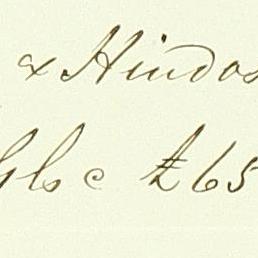 & Hindos
Gls c £65